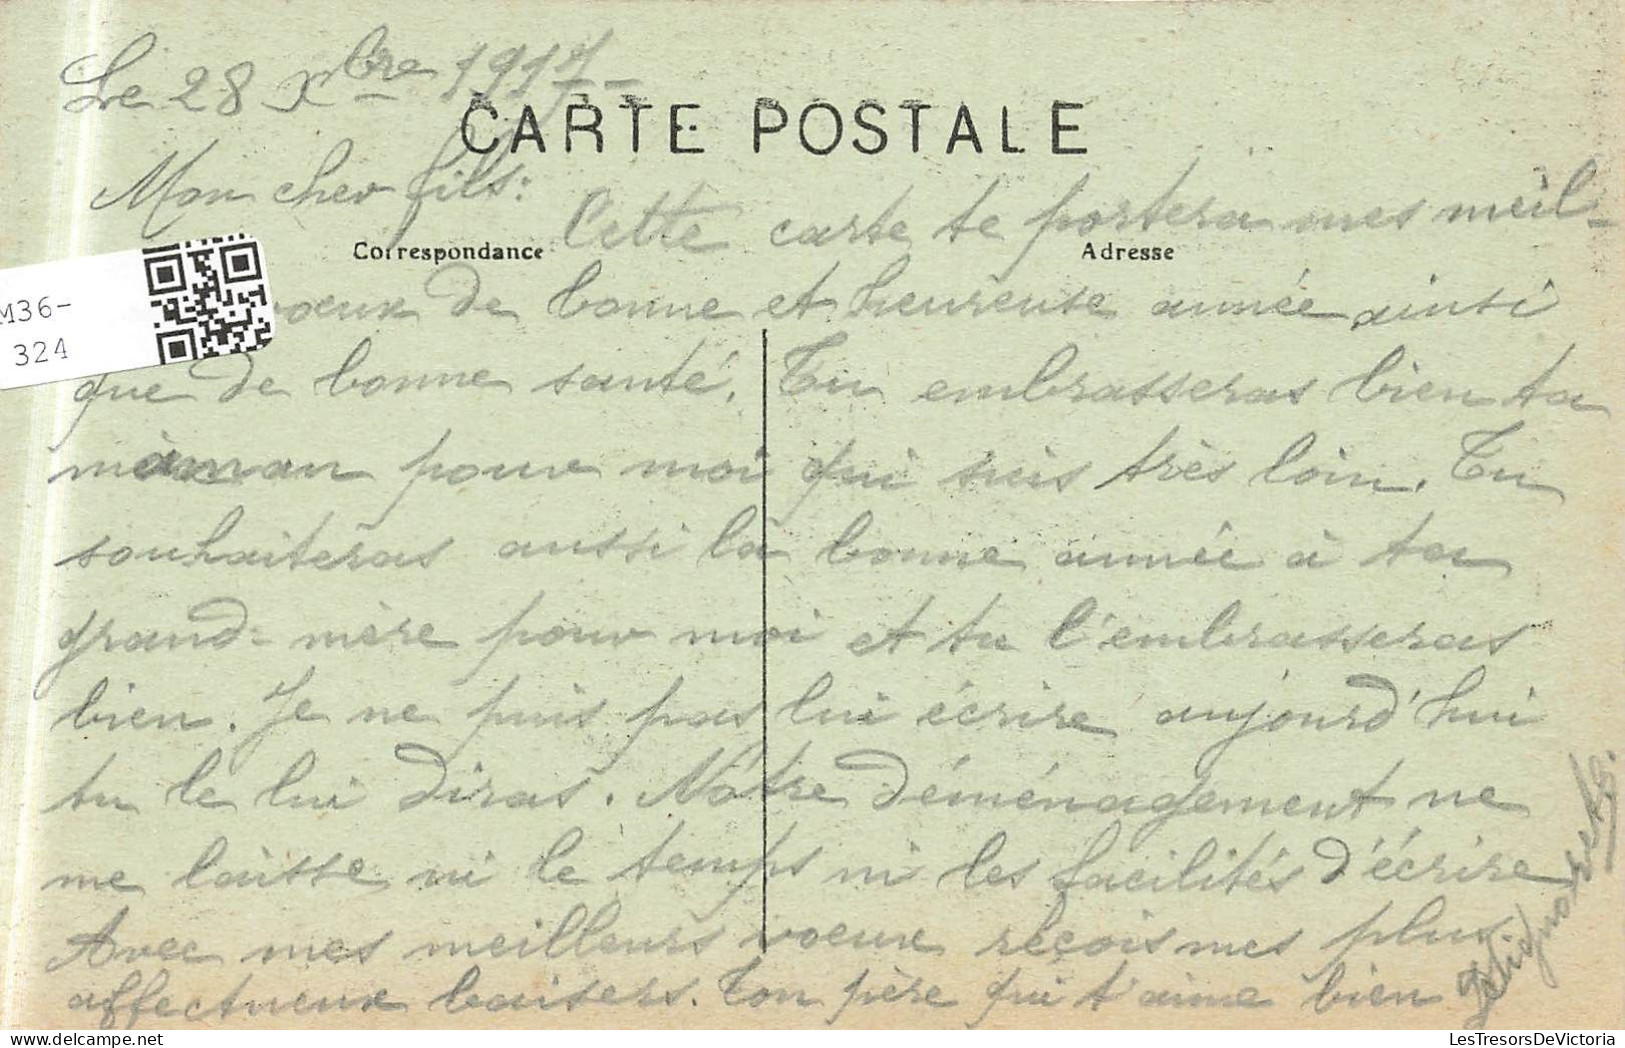 Le 28 Xbre 1917
CARTE POSTALE
Mon cher fils:
Cette carte te portera mes meil-
Correspondance
Adresse
voeux de bonne et heureuse année ainsi
M36-
324
que de bonne santé. Tu embrasseras bien ta
maman pour moi qui suis très loin. Tu
souhaiteras aussi la bonne année à ta
grand-mère pour moi et tu l'embrasseras
bien. Je ne puis pas lui écrire aujourd'hui
tu le lui diras. Nôtre déménagement ne
me laisse ni le temps ni les facilités d'écrire
Avec mes meilleurs voeux reçois mes plus
affectueux baisers. Ton père qui t'aime bien
LesTresorsDeVictoria